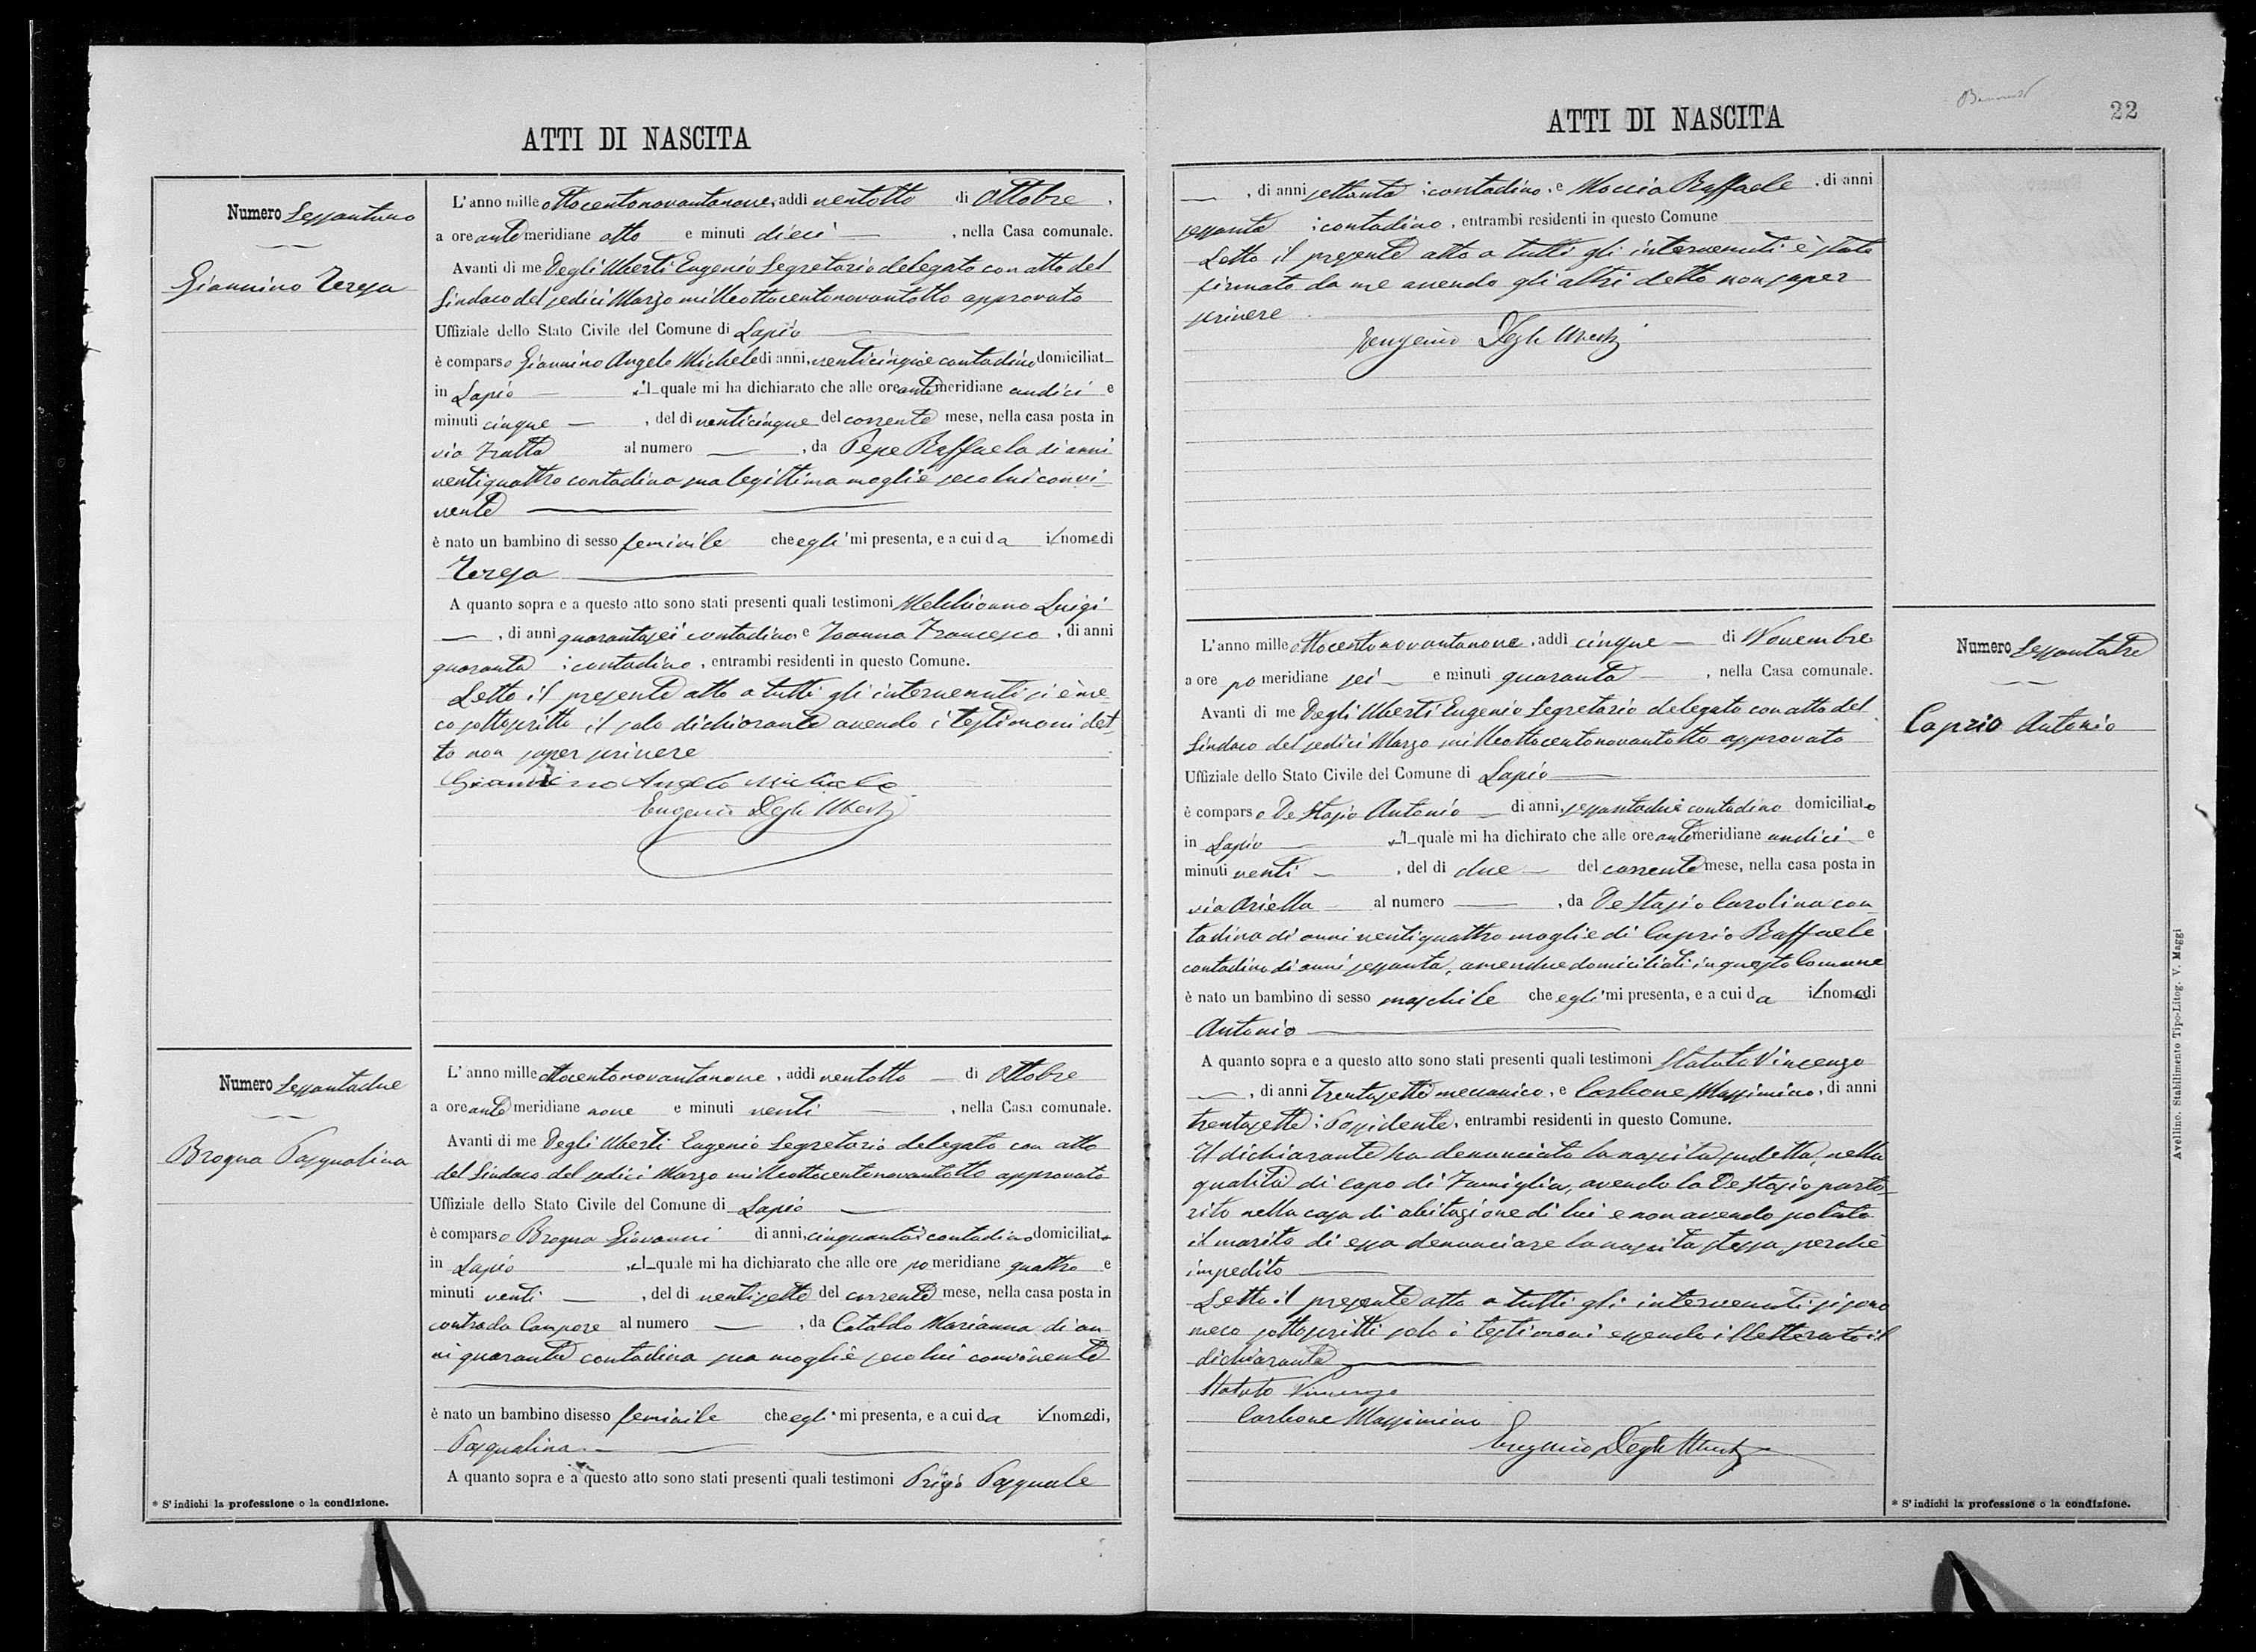 ATTI DI NASCITA
Numero Sessantuno
Giannino Teresa
L'anno mille ottocentonovantanove, addì ventotto di Ottobre,
a ore antemeridiane otto e minuti dieci, nella Casa comunale.
Avanti di me Degli Uberti Eugenio Segretario delegato con atto del
Sindaco del sedici Marzo milleottocentonovantotto approvato
Uffiziale dello Stato Civile del Comune di Lapio
è comparso Giannino Angelo Michele di anni, venticinque contadino domiciliat
in Lapio il quale mi ha dichiarato che alle ore antemeridiane undici e
minuti cinque, del dì venticinque del corrente mese, nella casa posta in
via Tratta al numero, da Pepe Raffaela di anni
ventiquattro contadina sua legittima moglie seco lui convi-
vente
è nato un bambino di sesso feminile che egli mi presenta, e a cui da il nome di
Teresa
A quanto sopra e a questo atto sono stati presenti quali testimoni Melchionno Luigi
, di anni quarantasei contadino e Joanna Francesco, di anni
quaranta contadino, entrambi residenti in questo Comune.
Letto il presente atto a tutti gli intervenuti si è me-
co sottoscritto il solo dichiarante avendo i testimoni det-
to non saper scrivere
Giannino Angelo Michele
Eugenio Degli Uberti
Numero Sessantadue
Brogna Pasqualina
L'anno mille ottocentonovantanove, addì ventotto di Ottobre
a ore antemeridiane nove e minuti venti, nella Casa comunale.
Avanti di me Degli Uberti Eugenio Segretario delegato con atto
del Sindaco del sedici Marzo milleottocentonovantotto approvato
Uffiziale dello Stato Civile del Comune di Lapio
è comparso Brogna Giovanni di anni, cinquanta contadino domiciliato
in Lapio, il quale mi ha dichiarato che alle ore pomeridiane quattro e
minuti venti, del dì ventisette del corrente mese, nella casa posta in
contrada Campore al numero, da Cataldo Marianna di an-
ni quaranta contadina sua moglie seco lui convivente
è nato un bambino di sesso feminile che egli mi presenta, e a cui da il nome di,
Pasqualina
A quanto sopra e a questo atto sono stati presenti quali testimoni Prizio Pasquale
* S'indichi la professione o la condizione.
ATTI DI NASCITA
22
, di anni settanta contadino, e Moccia Raffaele, di anni
sessanta contadino, entrambi residenti in questo Comune
Letto il presente atto a tutti gli intervenuti è stato
firmato da me avendo gli altri detto non saper
scrivere
Eugenio Degli Uberti
Numero Sessantatre
Caprio Antonio
L'anno mille ottocentonovantanove, addì cinque di Novembre
a ore pomeridiane sei e minuti quaranta, nella Casa comunale.
Avanti di me Degli Uberti Eugenio Segretario delegato con atto del
Sindaco del sedici Marzo milleottocentonovantotto approvato
Uffiziale dello Stato Civile del Comune di Lapio
è comparso De Stasio Antonio di anni, sessantadue contadino domiciliato
in Lapio il quale mi ha dichirato che alle ore antemeridiane undici e
minuti venti, del dì due del corrente mese, nella casa posta in
via Ariella al numero, da De Stasio Carolina con-
tadina di anni ventiquattro moglie di Caprio Raffaele
contadino di anni sessanta, amendue domiciliati in questo Comune
è nato un bambino di sesso maschile che egli mi presenta, e a cui da il nome di
Antonio
A quanto sopra e a questo atto sono stati presenti quali testimoni Statuto Vincenzo
, di anni trentasette meccanico, e Carbone Massimino, di anni
trentasette Possidente, entrambi residenti in questo Comune.
Il dichiarante ha denunciato la nascita sudetta, nella
qualità di capo di Famiglia, avendo la De Stasio parto-
rito nella casa di abitazione di lui e non avendo potuto
il marito di essa denunciare la nascita stessa, perchè
impedito
Letto il presente atto a tutti gli intervenuti si sono
meco sottoscritti solo i testimoni essendo illetterato il
dichiarante
Statuto Vincenzo
Carbone Massimino
Eugenio Degli Uberti
* S'indichi la professione o la condizione.
Avellino. Stabilimento Tipo-Litog. V. Maggi